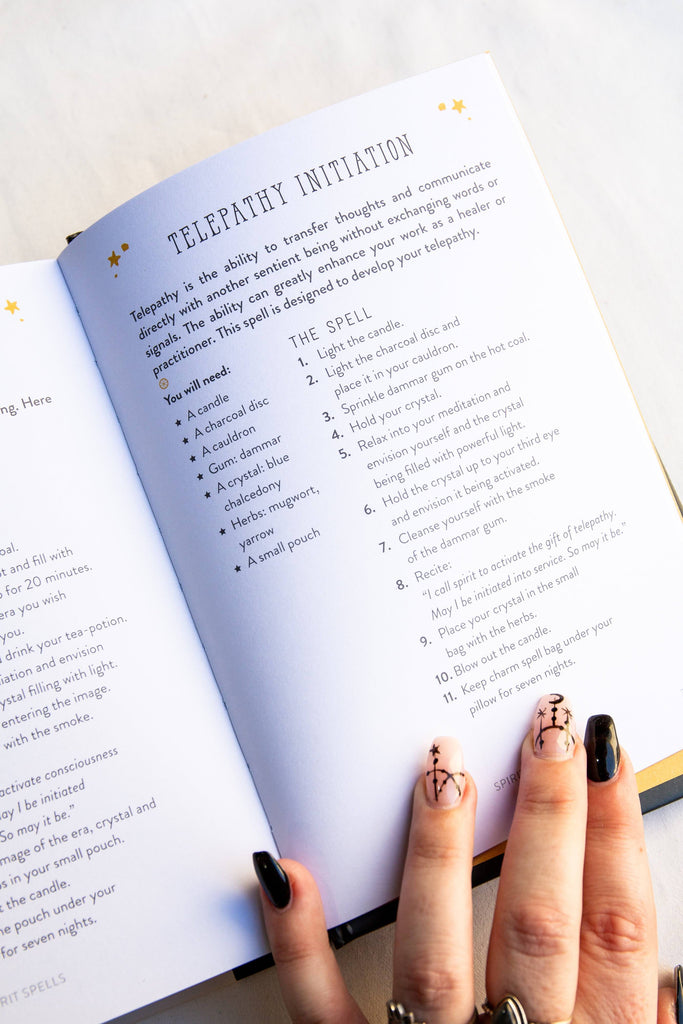 ng. Here
oal.
ot and fill with
o for 20 minutes.
era you wish
you.
d drink your tea-potion.
iation and envision
ystal filling with light.
entering the image.
with the smoke.
activate consciousness
may I be initiated
So may it be."
mage of the era, crystal and
s in your small pouch.
t the candle.
he pouch under your
for seven nights.
RIT SPELLS
TELEPATHY INITIATION
Telepathy is the ability to transfer thoughts and communicate
directly with another sentient being without exchanging words or
signals. The ability can greatly enhance your work as a healer or
practitioner. This spell is designed to develop your telepathy.
You will need:
★ A candle
★ A charcoal disc
★ A cauldron
★ Gum: dammar
★ A crystal: blue
chalcedony
★ Herbs: mugwort,
yarrow
★ A small pouch
THE SPELL
1. Light the candle.
2. Light the charcoal disc and
place it in your cauldron.
3. Sprinkle dammar gum on the hot coal.
4. Hold your crystal.
5. Relax into your meditation and
envision yourself and the crystal
being filled with powerful light.
6. Hold the crystal up to your third eye
and envision it being activated.
7. Cleanse yourself with the smoke
of the dammar gum.
8. Recite:
"I call spirit to activate the gift of telepathy.
May I be initiated into service. So may it be."
9. Place your crystal in the small
bag with the herbs.
10. Blow out the candle.
11. Keep charm spell bag under your
pillow for seven nights.
SPIRI